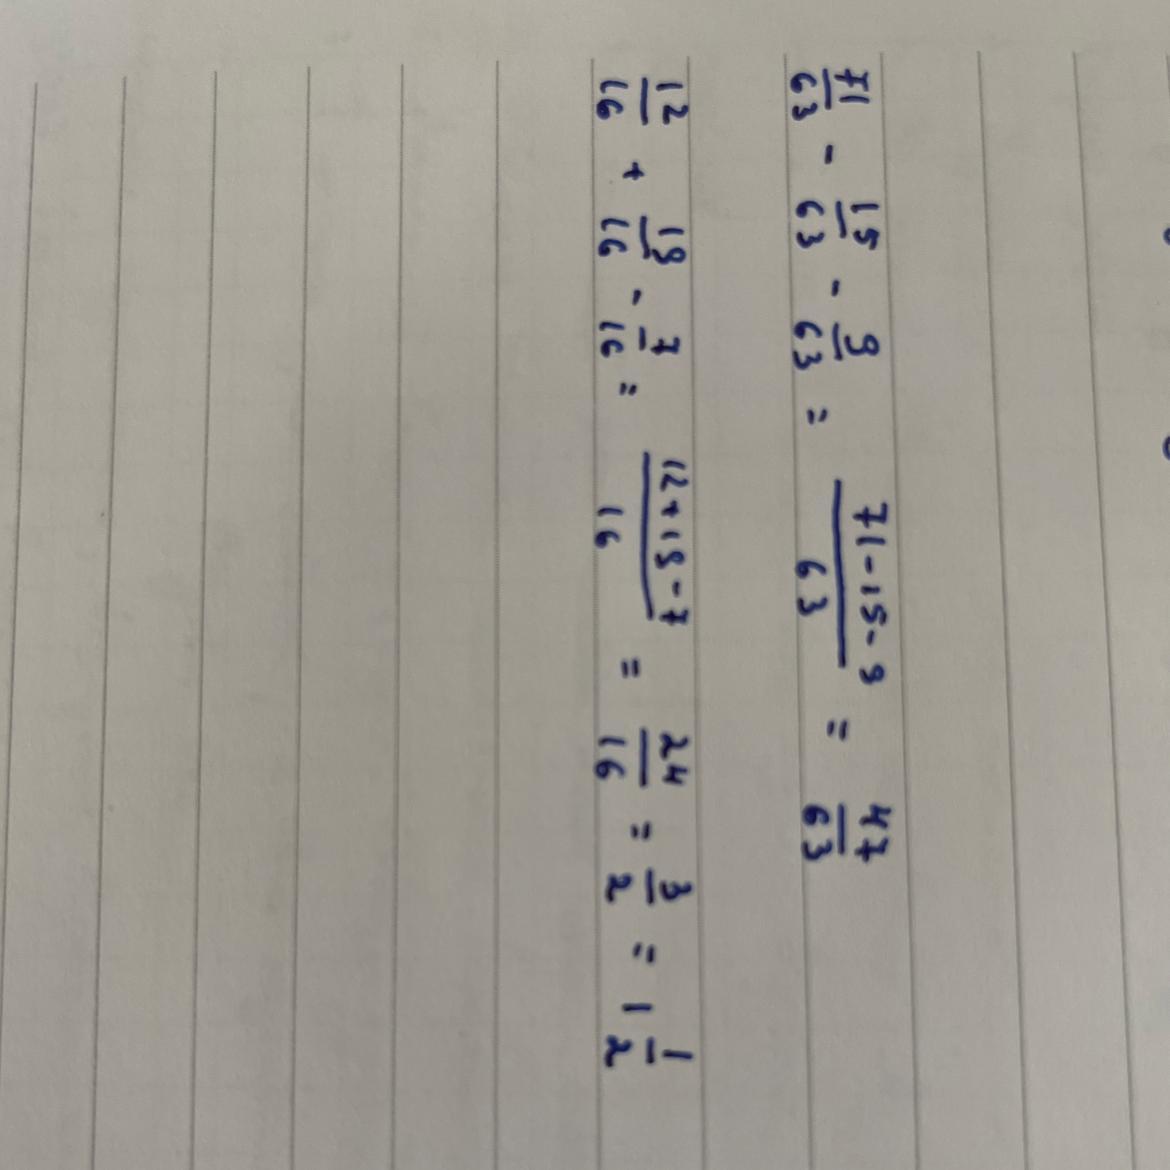 71/63 - 15/63 - 9/63 = (71-15-9)/63 = 47/63
12/16 + 19/16 - 7/16 = (12+19-7)/16 = 24/16 = 3/2 = 1 1/2